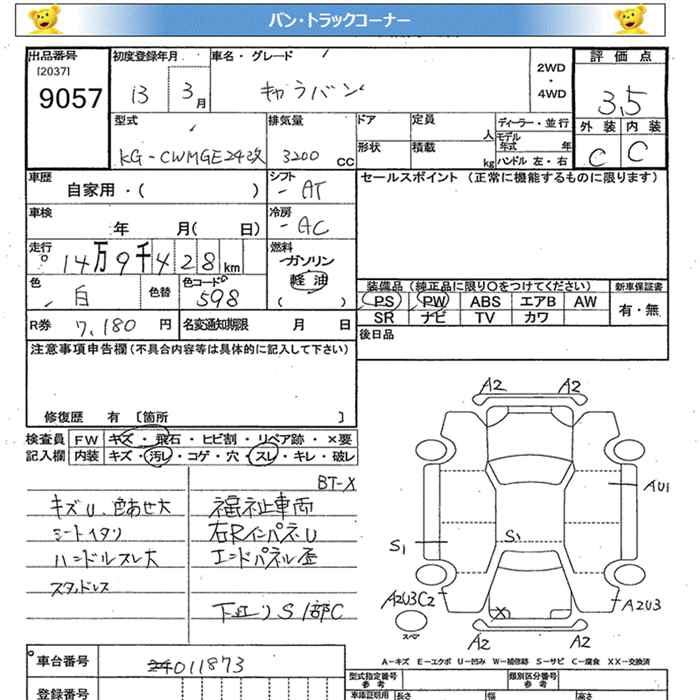 バン・トラックコーナー
出品番号
[2037]
9057
初度登録年月
13 3月
車名・グレード
キャラバン
2WD
・
4WD
評価点
3.5
外装 内装
C C
型式
KG-CWMGE24改
排気量
3200 cc
ドア
定員
人
形状
積載
kg
ディーラー・並行
モデル年式 年
ハンドル 左・右
車歴
自家用・( )
シフト
-AT
セールスポイント (正常に機能するものに限ります)
車検
年 月( 日)
冷房
-AC
走行
14万9千428km
燃料
ガソリン
軽油
( )
色
白
色替
色コードNo
598
装備品 (純正品に限り○をつけてください)
新車保証書
PS PW ABS エアB AW
有・無
SR ナビ TV カワ
R券 7,180 円
名変通知期限 月 日
後日品
注意事項申告欄(不具合内容等は具体的に記入して下さい)
修復歴 有 [箇所 ]
検査員記入欄
FW キズ・飛石・ヒビ割・リペア跡・×要
内装 キズ・汚レ・コゲ・穴・スレ・キレ・破レ
BT-X
キズU.色あせ大
シートイタリ
ハンドルスレ大
スタッドレス
福祉車両
右RインパネU
エンドパネル歪
下廻りS1部C
A2 A2
AU1
S1
S1
A2U3C2
A2U3
スペア
X
A2 A2
A-キズ E-エクボ U-凹み W-補修跡 S-サビ C-腐食 XX-交換済
車台番号
011873
登録番号
型式指定番号
参考
類別区分番号
参考
車検証明用
長さ
幅
高さ